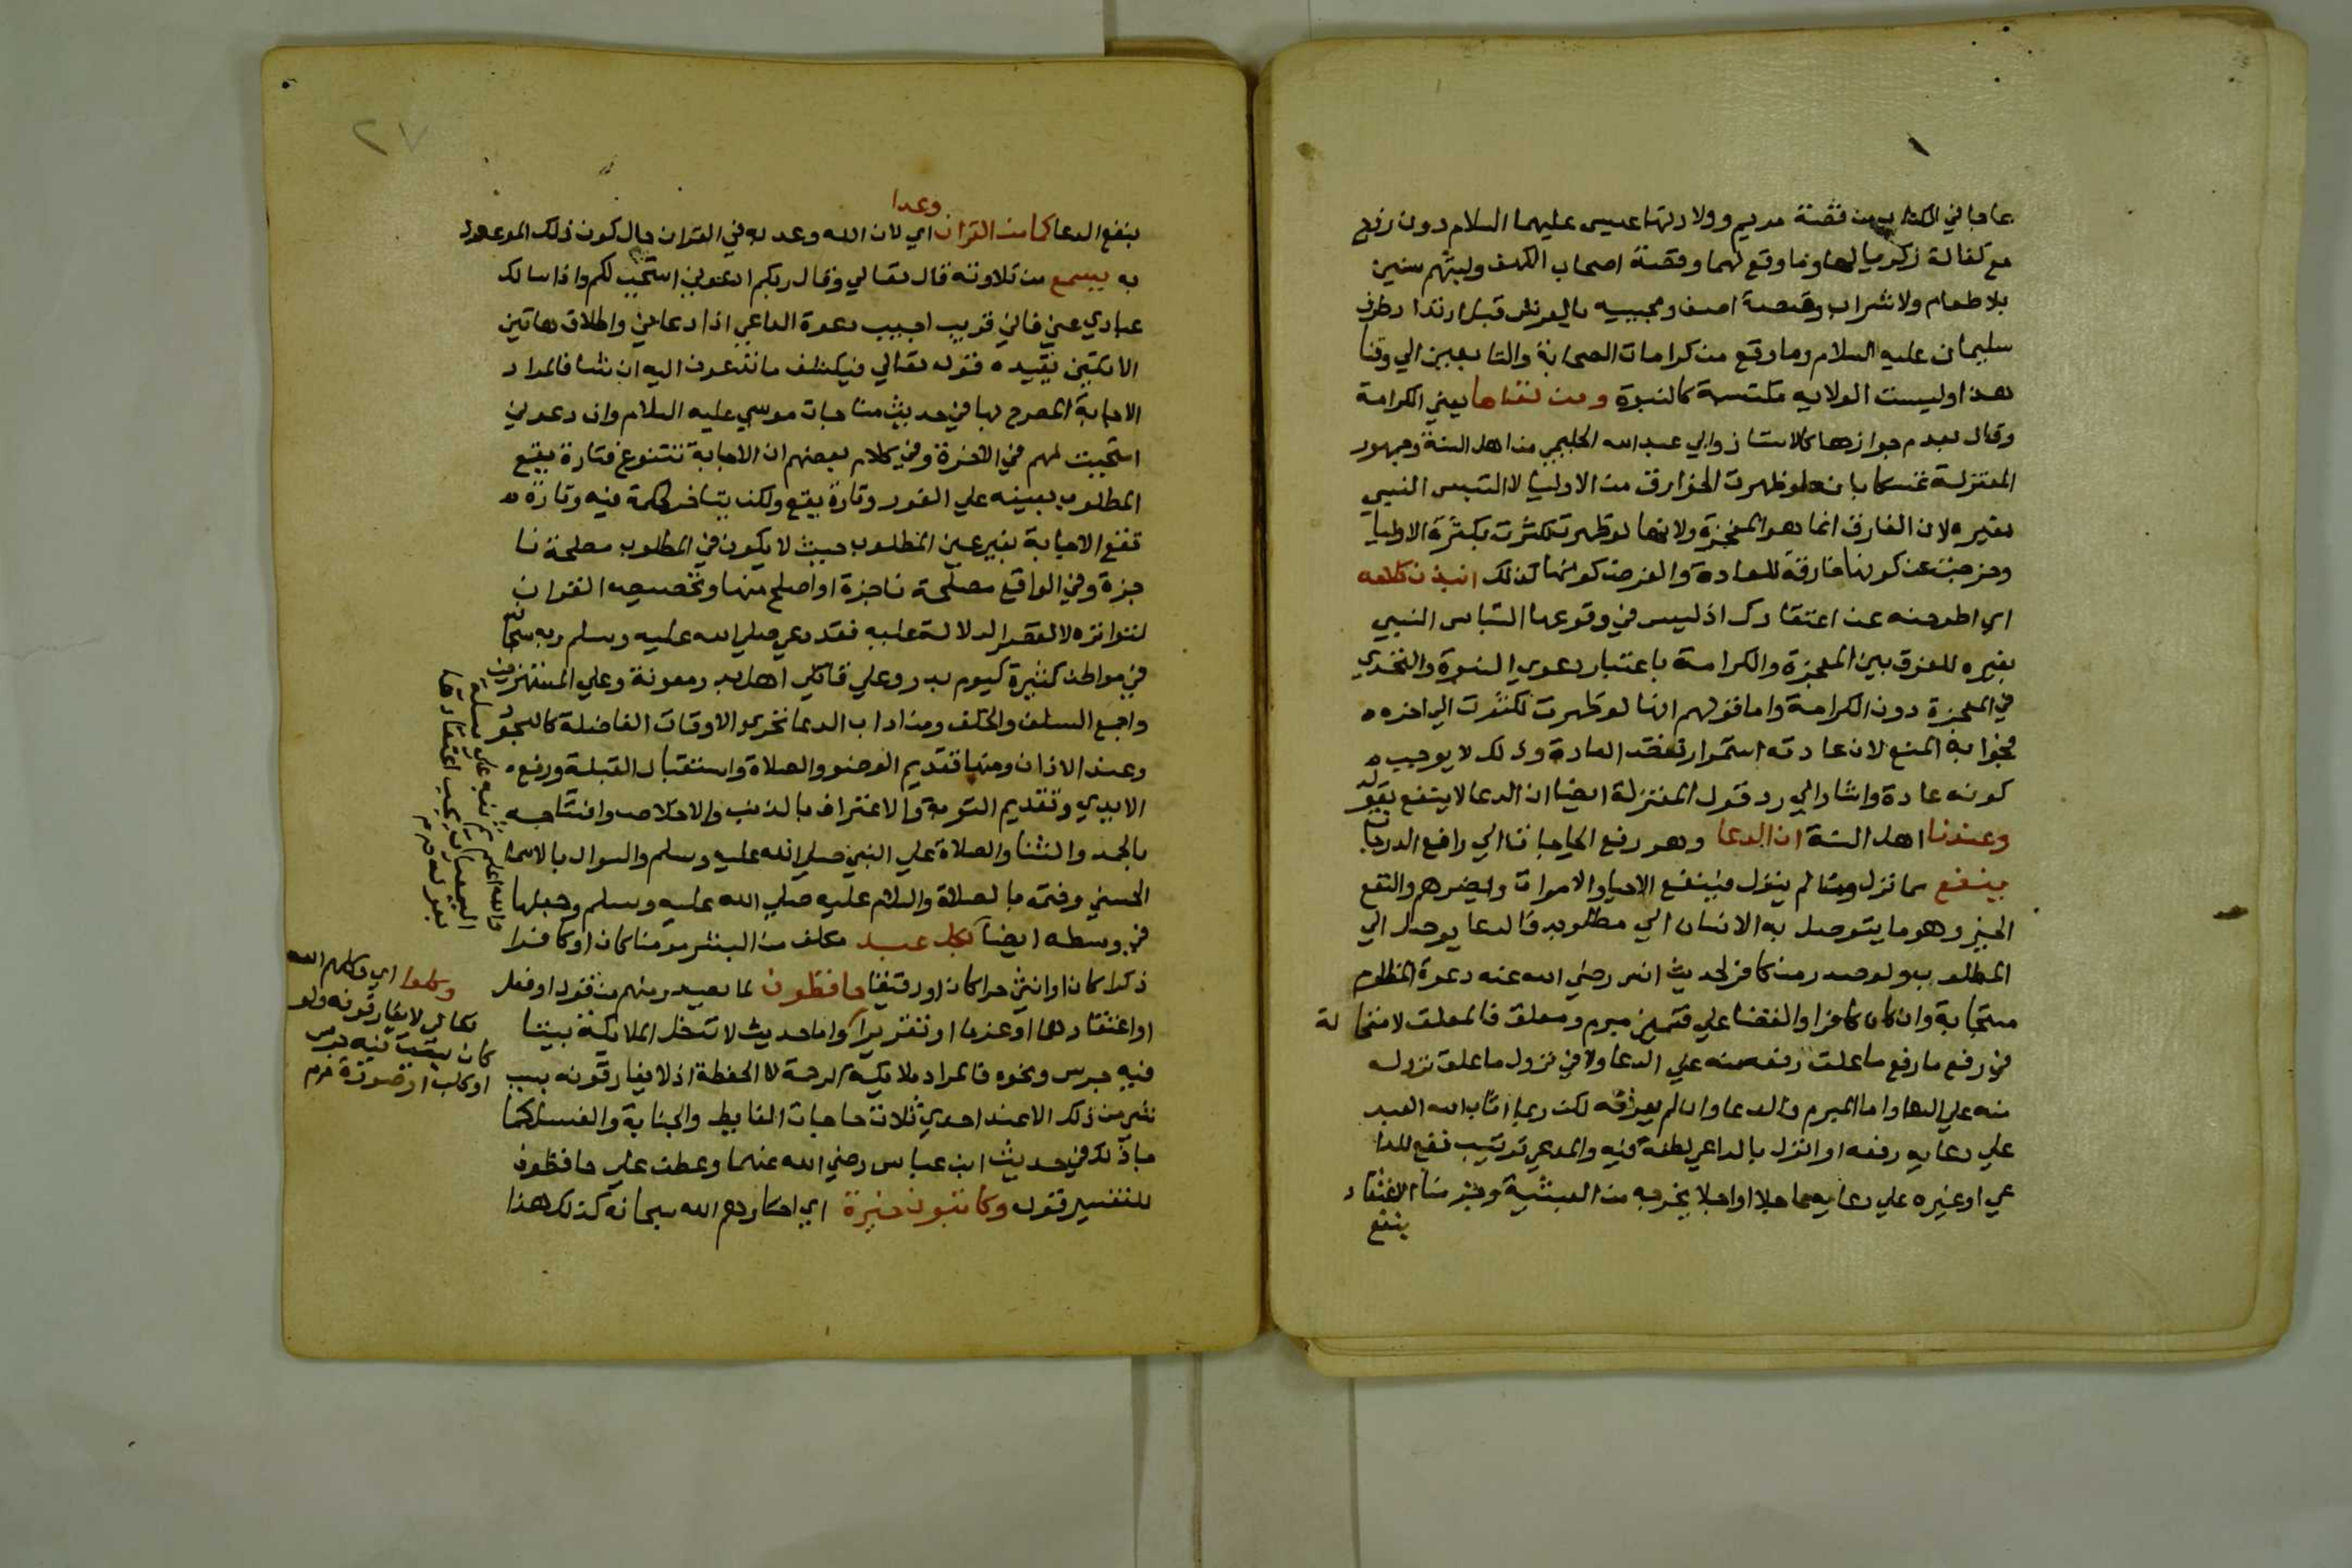 عاجا في الكتاب من قصة مريم وولادتها عيسى عليهما السلام دون زوج
مع كفالة زكريا لها وما وقع لهما وقصة اصحاب الكهف ولبثهم سنين
بلا طعام ولا شراب وقصة اصف ومجييه بالعرش قبل ارتداد طرف
سليمان عليه السلام وما وقع من كرامات الصحابة والتابعين الي وقتنا
هذا وليست الولاية مكتسبة كالنبوة ومن نفاها يعني الكرامة
وقال بعدم جوازها كالاستاذ وابي عبد الله الحليمي من اهل السنة وجمهور
المعتزلة تمسكا بانه لو ظهرت الخوارق من الاوليا لالتبس النبي
بغيره لان الفارق انما هو المعجزة ولانها لو ظهرت لكثرت بكثرة الاوليا
وخرجت عن كونها خارقة للعادة والفرض كونها كذلك انبذن كلامه
اي اطرحنه عن اعتقادك اذ ليس في وقوعها التباس النبي
بغيره للفرق بين المعجزة والكرامة باعتبار دعوي النبوة والتحدي
في المعجزة دون الكرامة واما قولهم انها لو ظهرت لكثرت الي اخره
فجوابه المنع لان عادته استمرار نقض العادة وذلك لا يوجب
كونه عادة واشار الي رد قول المعتزلة ايضا ان الدعا لا ينفع بقوله
وعندنا اهل السنة ان الدعا وهو رفع الحاجات الي رافع الدرجات
ينفع مما نزل ومما لم ينزل فينفع الاحيا والاموات ويضرهم والنفع
الخير وهو ما يتوصل به الانسان الي مطلوبه فالدعا يوصل الي
المطلوب ولو صدر من كافر لحديث انس رضي الله عنه دعوة المظلوم
مستجابة وان كان كافرا والقضا علي قسمين مبرم ومعلق فالمعلق لا استحالة
في رفع ما رفع ما علق رفعه منه علي الدعا ولا في نزول ما علق نزوله
منه علي الدعا واما المبرم فالدعا وان لم يعرفه لكن ربما اثاب الله العبد
علي دعايه رفعه او انزل بالداعي لطفه فيه والمدعي ترتيب نفع للدا
عي او غيره علي دعايه عاجلا او اجلا يخرجه من العبثية وخبر منا الاعتقاد
ينفع
٢٧
وعدا
ينفع الدعا كما من القران اي لان الله وعد به في القران حال كون ذلك الموعود
به يسمع من تلاوته قال تعالي وقال ربكم ادعوني استجب لكم واذا سالك
عبادي عني فاني قريب اجيب دعوة الداعي اذا دعاني واطلاق هاتين
الايتين يقيده قوله تعالي فيكشف ما تدعون اليه ان شا فالمراد
الاجابة المصرح بها في حديث مناجات موسي عليه السلام وان دعوني
استجبت لهم في الاخرة وفي كلام بعضهم ان الاجابة تتنوع فتارة يقع
المطلوب بعينه علي الفور وتارة يقع ولكن يتاخر لحكمة فيه وتارة
تقع الاجابة بغير عين المطلوب حيث لا يكون في المطلوب مصلحة نا
جزة وفي الواقع مصلحة ناجزة او اصلح منها وتخصيصه القران
لتواتره لا لقصر الدلالة عليه فقد دعي صلي الله عليه وسلم ربه سبحانه
في مواطن كثيرة كيوم بدر وعلي قاتلي اهل بير معونة وعلي المستهزءين
واجمع السلف والخلف ومن اداب الدعا تحري الاوقات الفاضلة كالسجود
وعند الاذان ومنها تقديم الوضو والصلاة واستقبال القبلة ورفع
الايدي وتقديم التوبة والاعتراف بالذنب والاخلاص وافتتاحه
بالحمد والثنا والصلاة علي النبي صلي الله عليه وسلم والسوال بالاسما
الحسني وختمه بالصلاة والسلام عليه صلي الله عليه وسلم وجعلها
في وسطه ايضا بكل عبد مكلف من البشر مومنا كان او كافرا
ذكرا كان او انثي حرا كان او رقيقا حافظون لما يصدر منهم من قول او فعل
او اعتقاد هما او عزما او تقريرا واما حديث لا تدخل الملايكة بيتا
فيه جرس ونحوه فالمراد ملايكة الرحمة لا الحفظة اذ لا يفارقونه بسبب
شي من ذلك الا عند احدي ثلاث حاجات الغايط والجنابة والغسل كما
جا ذلك في حديث ابن عباس رضي الله عنهما وعطف علي حافظون
للتفسير قوله وكاتبون خيرة اي اختارهم الله سبحانه كذلك هذا
والله اعلم ثم نبه علي مسئلة من
السمعيات يجب اعتقادها
بقوله
وكلوا اي وكلهم الله
تعالي لا يفارقونه ولو
كان ببيت فيه جرس
او كلب او صورة